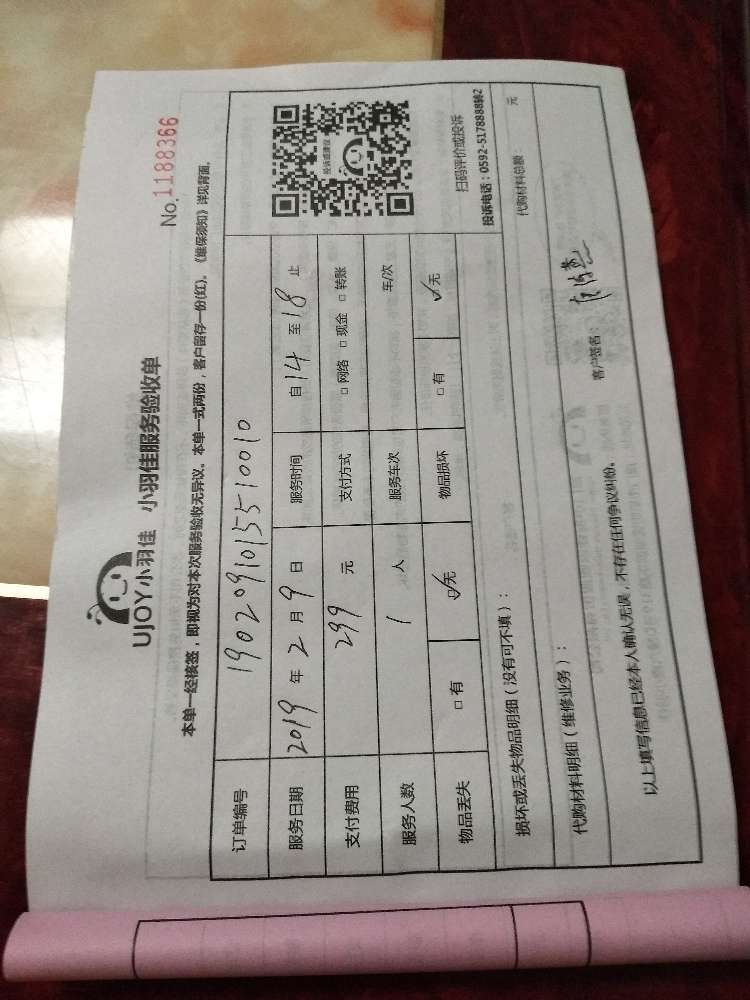 UJOY小羽佳 小羽佳服务验收单
No.1188366
本单一经核签，即视为对本次服务验收无异议。本单一式两份，客户留存一份(红)。《维保须知》详见背面。
订单编号 190209101551 0010
服务日期 2019 年 2 月 9 日 服务时间 自 14 至 18 止
支付费用 299 元 支付方式 □网络 □现金 □转账
服务人数 1 人 服务车次 车/次
物品丢失 □有 ☑无 物品损坏 □有 ☑无
投诉或建议
扫码评价或投诉
投诉电话：0592-5178888转2
损坏或丢失物品明细（没有可不填）：
代购材料明细（维修业务）： 代购材料总额： 元
以上填写信息已经本人确认无误，不存在任何争议纠纷。 客户签名：